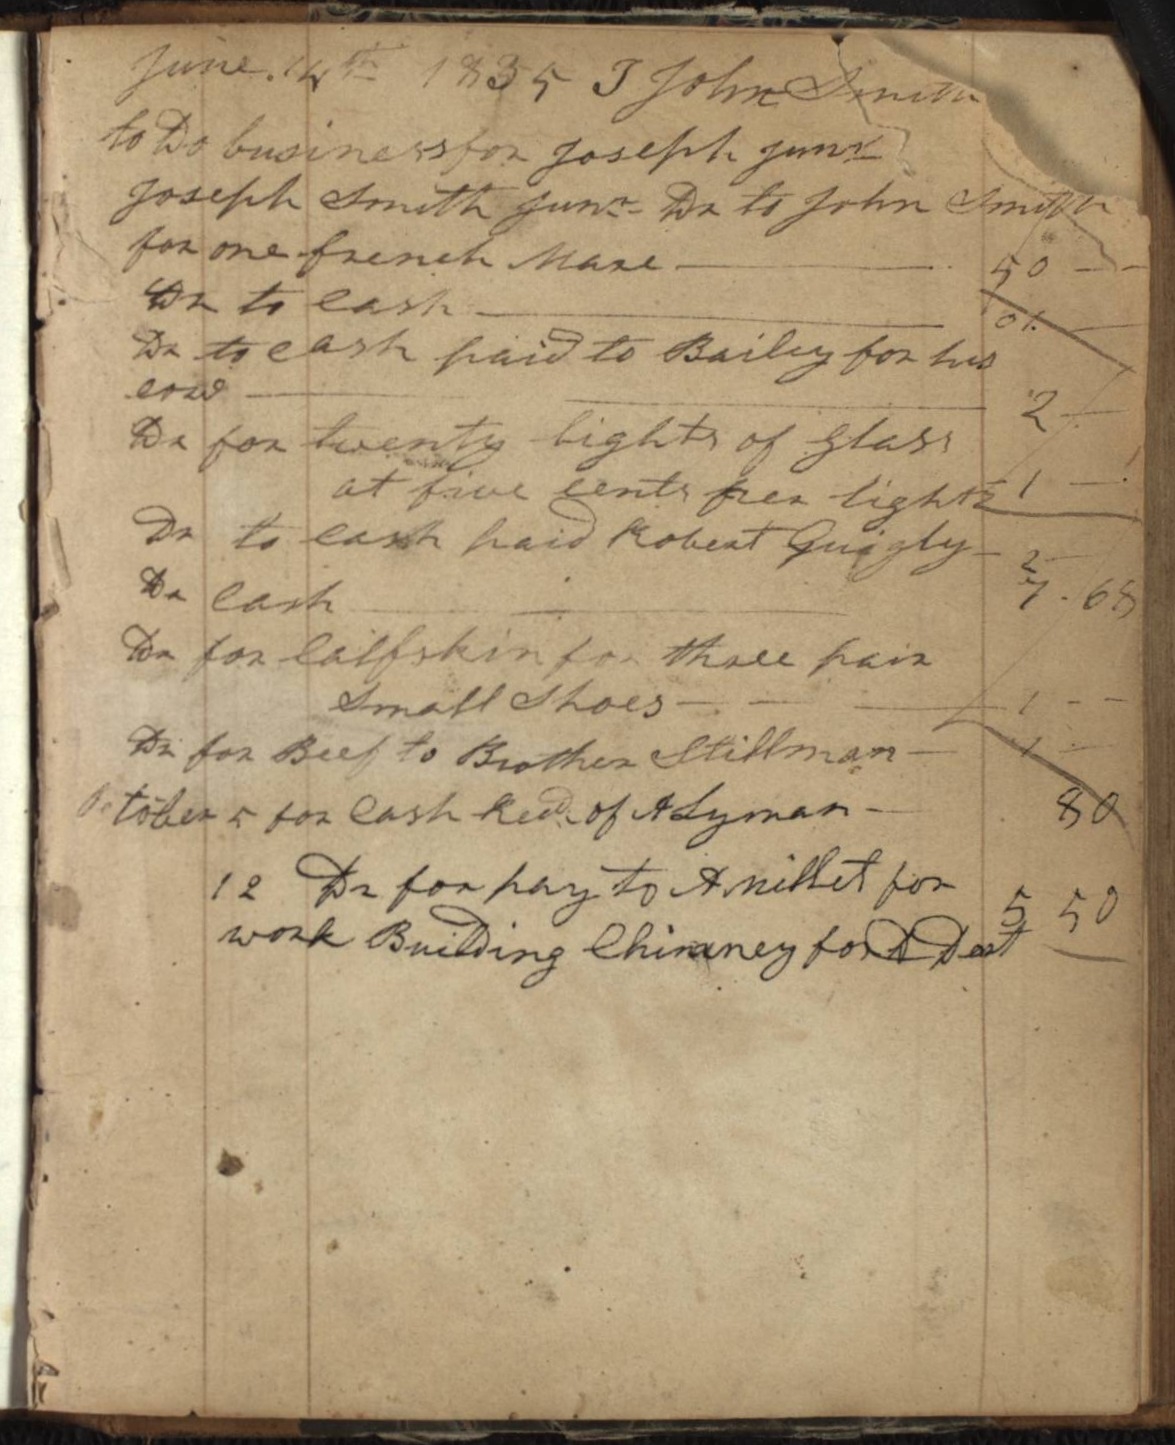 June 14th 1835 I John Smith
to Do business for Joseph Junr
Joseph Smith Junr - Dr to John Smith
for one french Mare — 50 - -
Dr to Cash — 01.
Dr to cash paid to Bailey for his
cow — 2 —
Dr for twenty lights of glass
at five cents per light 1 —
Dr to cash paid Robert Quigly - 2 —
Dr Cash — 7 . 68
Dr for Calfskin for three pair
Small Shoes - — 1 - -
Dr for Beef to Brother Stillman — 1 —
October 5 for Cash Recd. of A Lyman - 80
12 Dr for pay to A millet for 5 50
work Building Chimney for